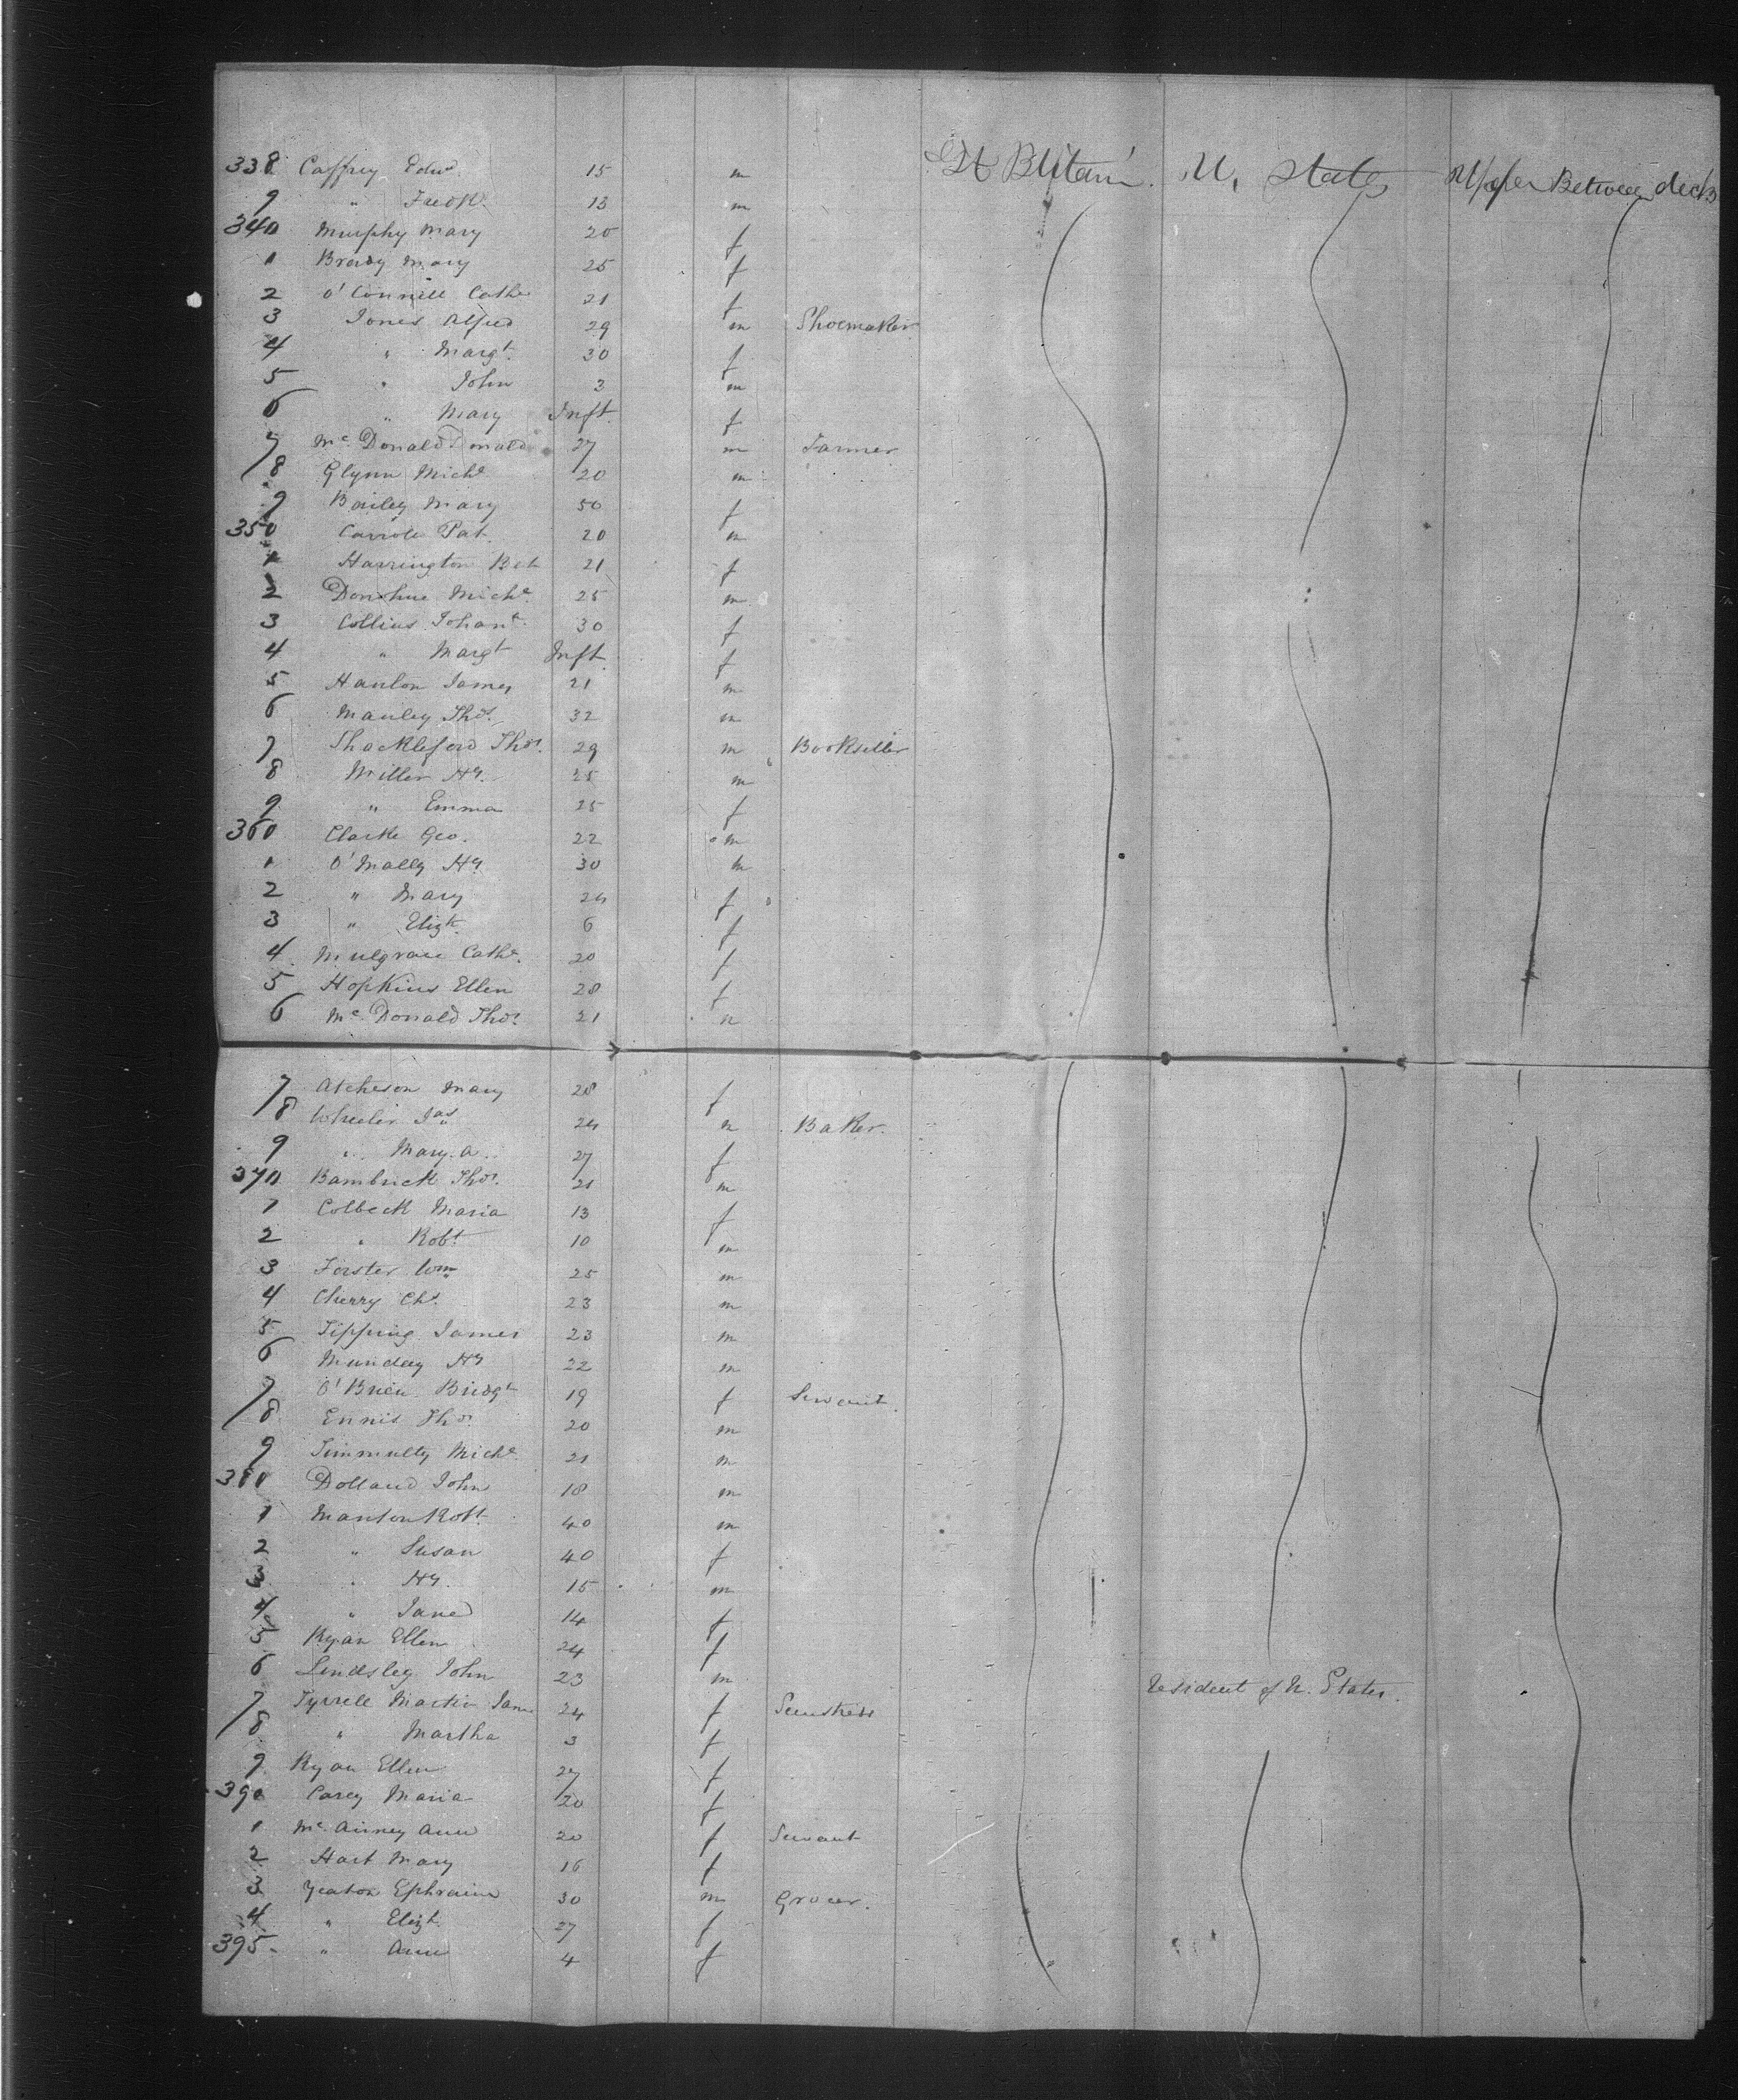 338 Caffrey Edwd. 15 m Gt Britain. U. States Upper Between decks
9 " Fredk. 13 m
340 Murphy Mary 20 f
1 Brady Mary 25 f
2 O'Connell Cathe 21 f
3 Jones Alfred 29 m Shoemaker
4 " Margt. 30 f
5 " John 3 m
6 " Mary Inft. f
7 Mc Donald Donald 27 m Farmer
8 Glynn Michl 20 m
9 Bailey Mary 50 f
350 Carroll Pat. 20 m
1 Harrington Bet 21 f
2 Donohue Michl. 25 m
3 Collins Johant. 30 f
4 " Margt Inft. f
5 Hanlon James 21 m
6 Manley Thos. 32 m
7 Shackleford Thos. 29 m Bookseller
8 Miller Hy. 25 m
9 " Emma 25 f
360 Clarke Geo. 22 m
1 O'Mally Hy. 30 m
2 " Mary 24 f
3 " Elizt. 6 f
4 Mulgrave Cathe. 20 f
5 Hopkins Ellen 28 f
6 Mc Donald Thos. 21 m
7 Atcheson Mary 28 f
8 Wheeler Jas 24 m Baker.
9 " Mary. A. 27 f
370 Bambrick Thos. 21 m
1 Colbeck Maria 13 f
2 " Robt 10 m
3 Forster Wm 25 m
4 Cherry Chs. 23 m
5 Tipping James 23 m
6 Munday Hy 22 m
7 O'Brien Bridgt 19 f Servant.
8 Ennis Thos. 20 m
9 Timmulty Michl. 21 m
380 Dolland John 18 m
1 Manton Robt. 40 m
2 " Susan 40 f
3 " Hy. 15 m
4 " Jane 14 f
5 Ryan Ellen 24 f
6 Lindsley John 23 m Resident of U. States.
7 Tyrrell Martin Jane 24 f Seamstress
8 " Martha 3 f
9 Ryan Ellen 27 f
390 Carey Maria 20 f
1 Mc Airney Ann 20 f Servant
2 Hart Mary 16 f
3 Yeaton Ephraim 30 m Grocer.
4 " Elizt. 27 f
395. " Ann 4 f